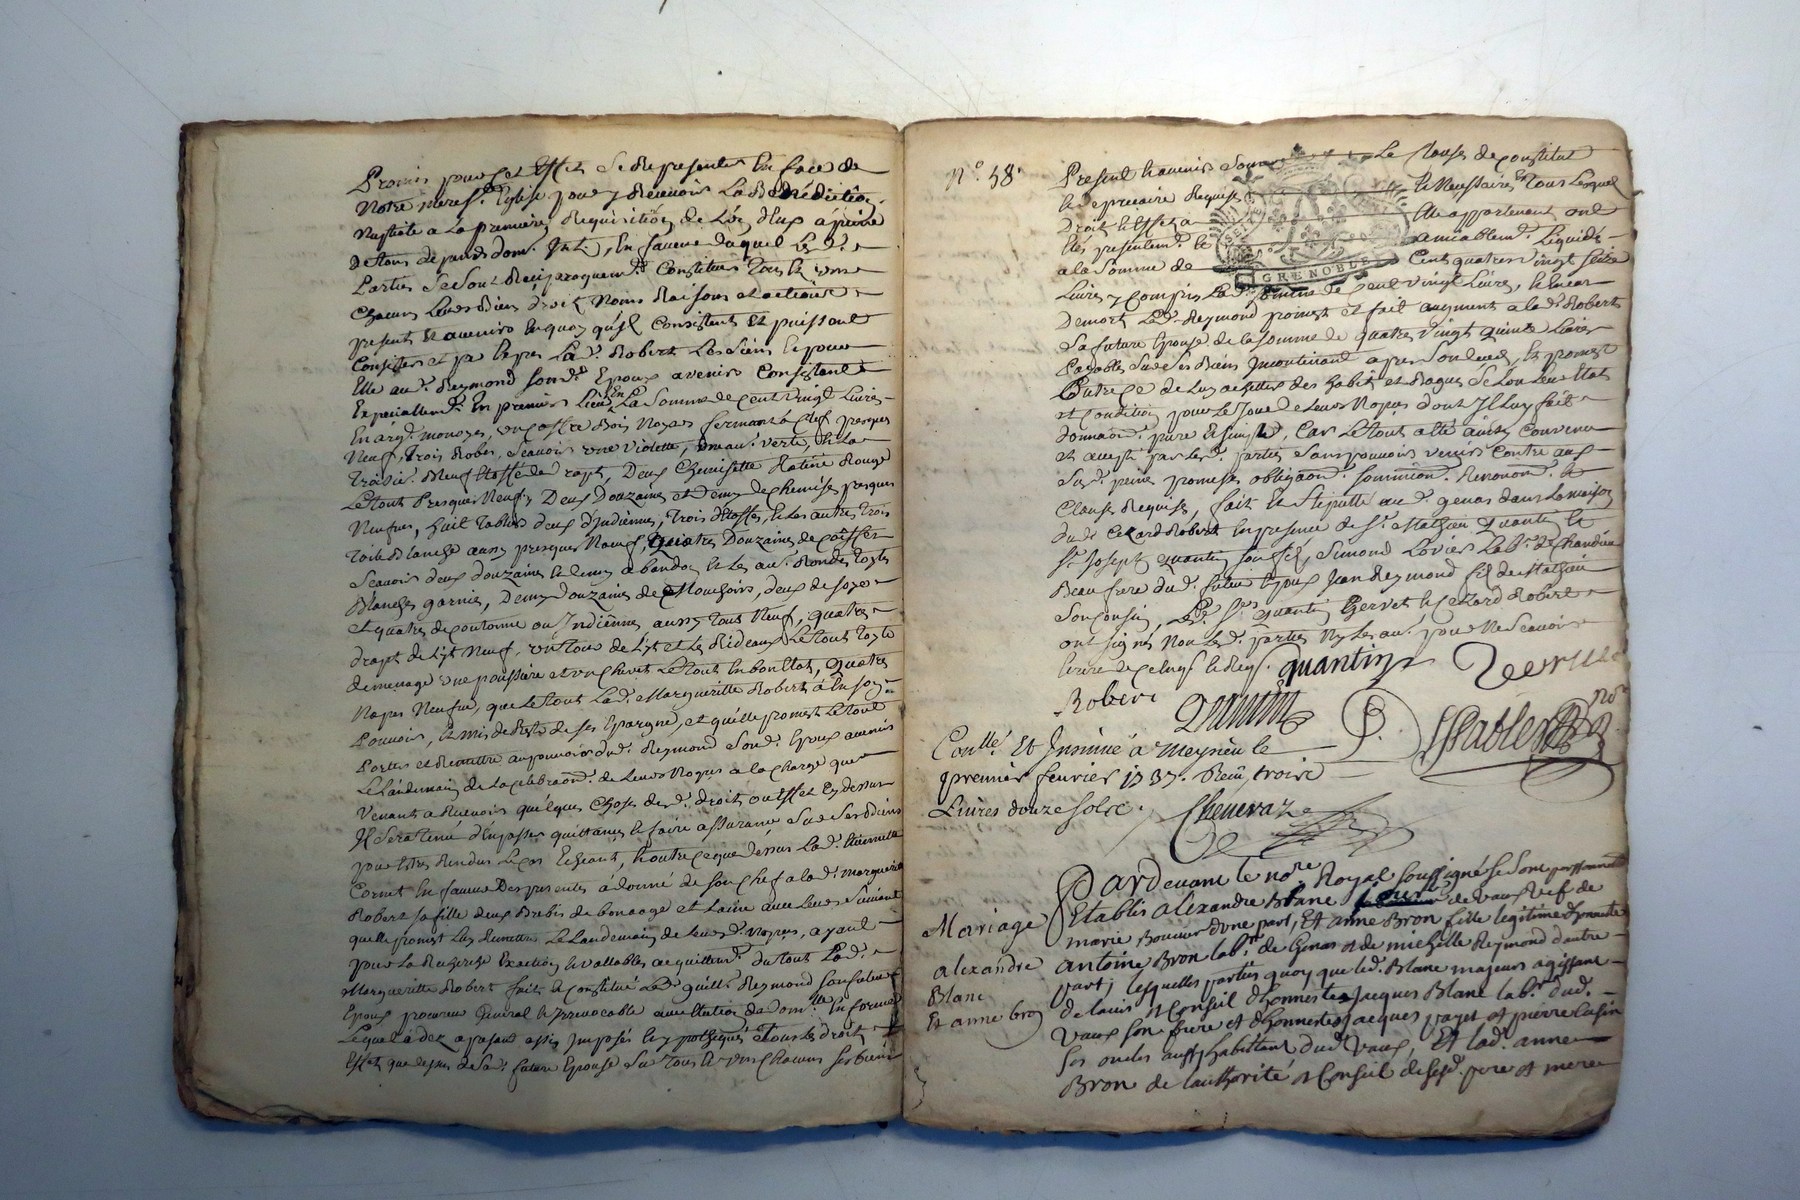 Promis pour cet Effet se Representer En face de
Notre mere Ste Eglise pour y Recevoir La Benédiction
Nuptiale a La premiere Requisition de L'un d'Eux à peine
De tous depands dom. Int., En faveur Duquel Le d.
Parties Se sont Reciproquemt. Constitués Tous Et uns
Chacuns Leurs Biens droits Noms Raisons et actions
presents Et avenirs En quoy qu'ils Consistent Et puissent
Consister et par Exprès La d. Robert Les Siens Et pour
Elle au d. Reymond son d. Epoux avenir Consistent
Especiallemt. En premier Lieu En La Somme de Cent vingt Livres
En argt. monoyé, un Coffre Bois Noyer fermant à Clef presque
Neuf, Trois Robes, Scavoir une violette, un au. verte, Et La
Troisie. Neuf Etoffe de rapt, Deux Chemisette Ratine Rouge
Le tout Presque Neuf, Deux Douzaines et Demy de chemises presques
Neufve, huit Tabliers deux d'Indienne, Trois d'Etoffes, Et Les autre Trois
Toile Blanche aussy presques Neuf, Quatre Douzaines de Coiffes
Scavoir deux douzaines Et demy a bandou Et Les au. Rondes Toyle
Blanches garnies, Demy Douzaines de Mouchoirs, deux de Soye
et quatre de Coutonne ou Indienne aussy Tout Neuf, quatre
draps de Lyt Neuf, un Tour de Lyt et Les Rideaux Le tout Toyle
de menage une poussiere et un Chevet Le tout En bon Etat, Quatre
Napes Neufve, que Le tout La d. Margueritte Robert à En son
Pouvoir, Et mis de Reste de ses Epargne, et qu'elle promest Le tout
Porter et Remettre au pouvoir du d. Reymond Son d. Epoux avenir
Le Landemain de La Celebraon. de Leurs Nopces a La Charge que
Venant a Recevoir quelques Choses de s. d. droit ou Effet Cy dessus
Il Sera tenu d'En passer quittance Et faire assurance Sur Ses Biens
pour Estre Rendus Le Cas Echeant, Et outre Ce que dessus La d. Etiennette
Cornet En faveur Des presentes à donné de Son Chef a la d. Marguerite
Robert Sa fille deux Brebis de bon aage et Laine avec Leurs Suivant
qu'elle promest Luy Remettre Le Landemain de Leurs d. Nopces, ayant
pour La Recherche Exaction Et vallables acquittemt. du tout La d.
Marguerite Robert fait Et Constitué Le d. Guill. Reymond Son futur
Epoux procureur General Et Irrevocable avec Election de Dom. En forme
Lequel à dez a present assis Imposés Et ypothequés Tous Les droits
Effet que dessus de Sa d. future Epouse Sur Tous Et uns Chacuns Ses biens
N°. 58.
Present Et avenir Sous Le Clauses de Constitut
Et de precaire Requise Et Necessaire En Tous Lesquel
Droit Et Effet a Elle appartenent ont
Etés presentemt. Et amiablemt. Liquidés
a la Somme de Cent quatre vingt Seize
Livres y Compris La d. Somme de Cent vingt Livres, Et En cas
De mort Le d. Reymond promest et fait augment a la d. Robert
Sa future Epouse de la Somme de quatre vingt quinze Livres
Payables Sur Ses Biens Incontinant apres Son deces, Et promest
Outre Ce de Luy achetter des habits et Bagues Selon Leur Etat
et Condition pour Le Jour de Leurs Nopces dont Il Luy fait
donnaon. pure Et Simple, Car Le tout a Eté ainsy Convenu
et accepté par Les d. parties Sans pouvoir venir Contre aux
Sus d. peine promesses obligaon. Soumission. Renonon. Et
Clause Requises, fait Et Stipullé au d. genas dans La maison
du d. Cezard Robert En presence de Sr. Mathieu Quantin Et
Sr. Joseph Quantin Son fils, Simond Lovier Labr. de Chandieu
Beau frere du d. futur Epoux Jean Reymond fils de Mathieu
Son Cousin, Les d. Srs. Quantin Gervet Et Cezard Robert
ont Signés Non Le d. parties Ny Les au. pour Ne Scavoir
Ecrire de Ce Enquis Et Req. quantin
Robert Quantin
Contlé. Et Insinué a Meyzieu le
premier fevrier 1737. Reçu trois
Livres douze Solz. Chenevaz
Pardevant le nore. Royal soussigné se sont personnellement
Etablis alexandre Blanc de Vaux Vef de
marie Bouvier d'une part, Et anne Bron fille legitime d'honneste
antoine Bron labr. de Genas et de michelle Reymond d'autre
part, lesquelles parties quoy que led. Blanc majeurs agissant
de lavis et Conseil d'honnestes Jacques Blanc labr. dud.
Vaux son frere et d'honnestes Jacques payet et pierre Casin
ses oncles aussy habittant dud. Vaux, Et lad. anne
Bron de lauthorité et Conseil de sesd. pere et mere
Mariage
alexandre
Blanc
Et anne bron
GRENOBLE